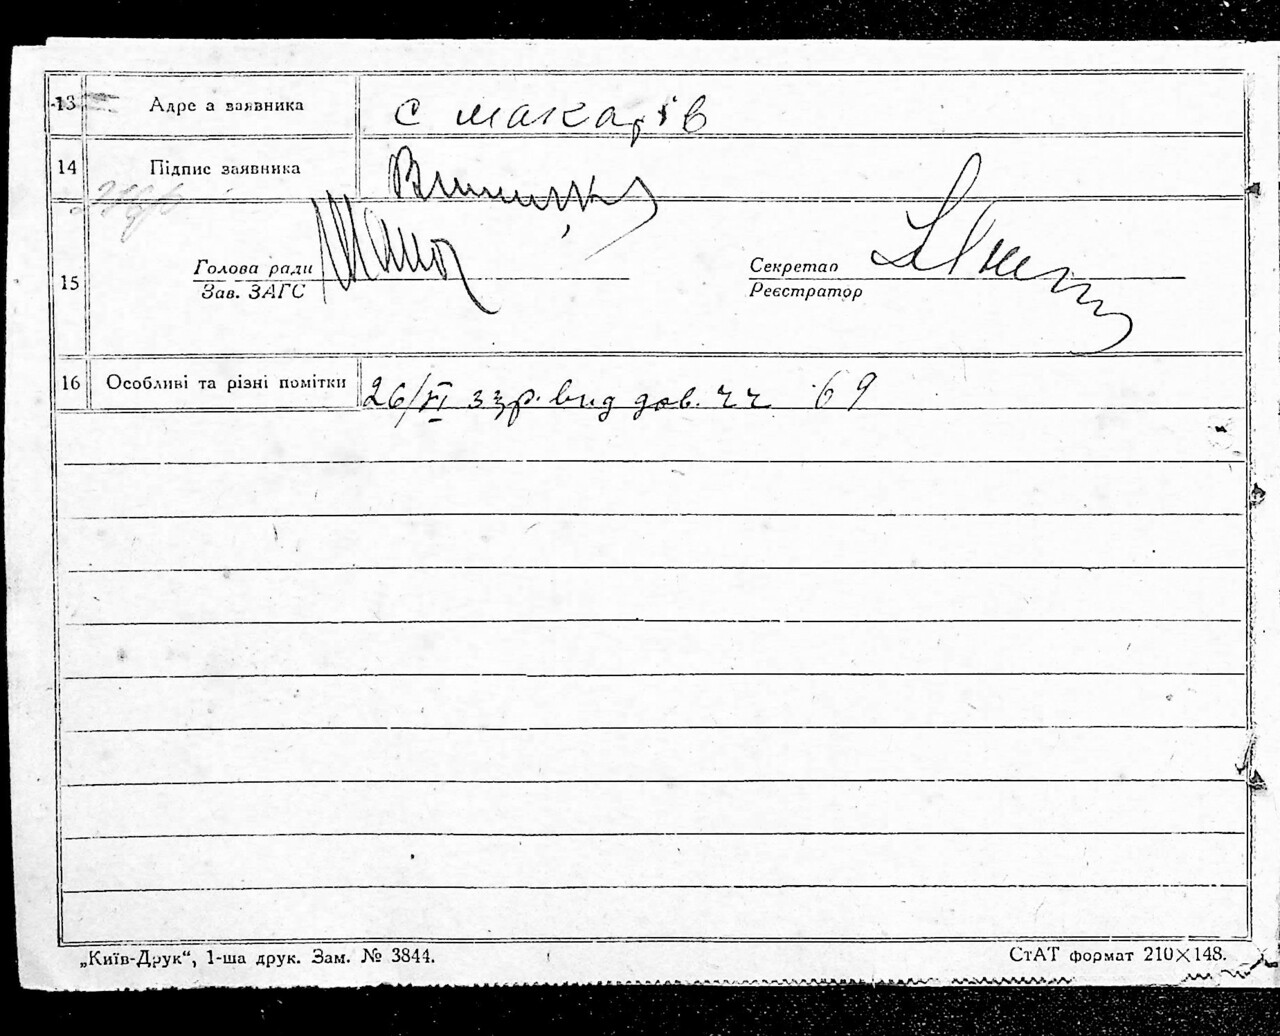 13 Адре а заявника с Макарів
14 Підпис заявника
15 Голова ради
Зав. ЗАГС
Секретар
Реєстратор
16 Особливі та різні помітки 26/VI 33р. вид дов. чч 69
„Київ-Друк“, 1-ша друк. Зам. № 3844.
СтАТ формат 210×148.